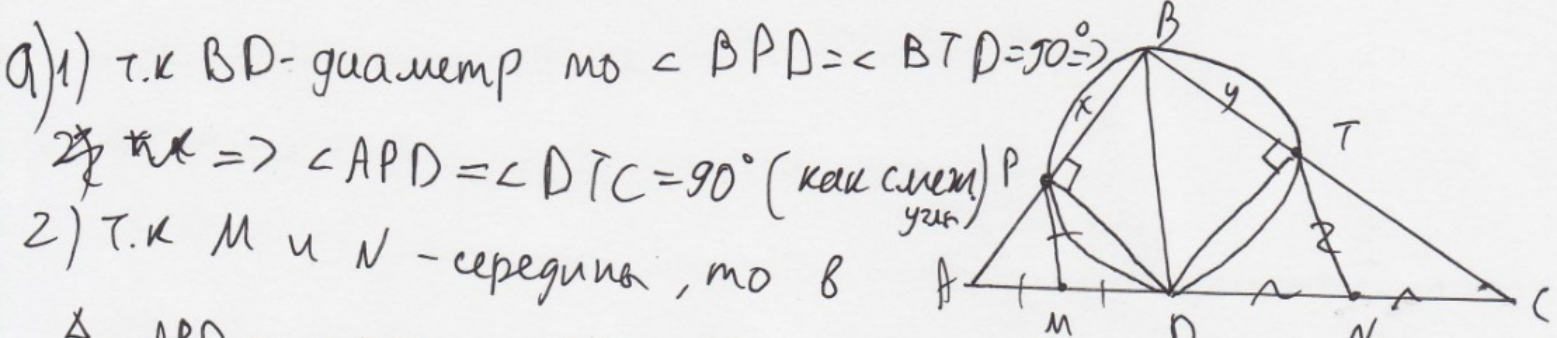 а) 1) т.к BD - диаметр то < BPD = < BTD = 90° =>
=> < APD = < DTC = 90° (как смеж углы)
2) т.к M и N - середины, то в
Δ APD
B
x
y
T
P
z
A
M
D
N
C